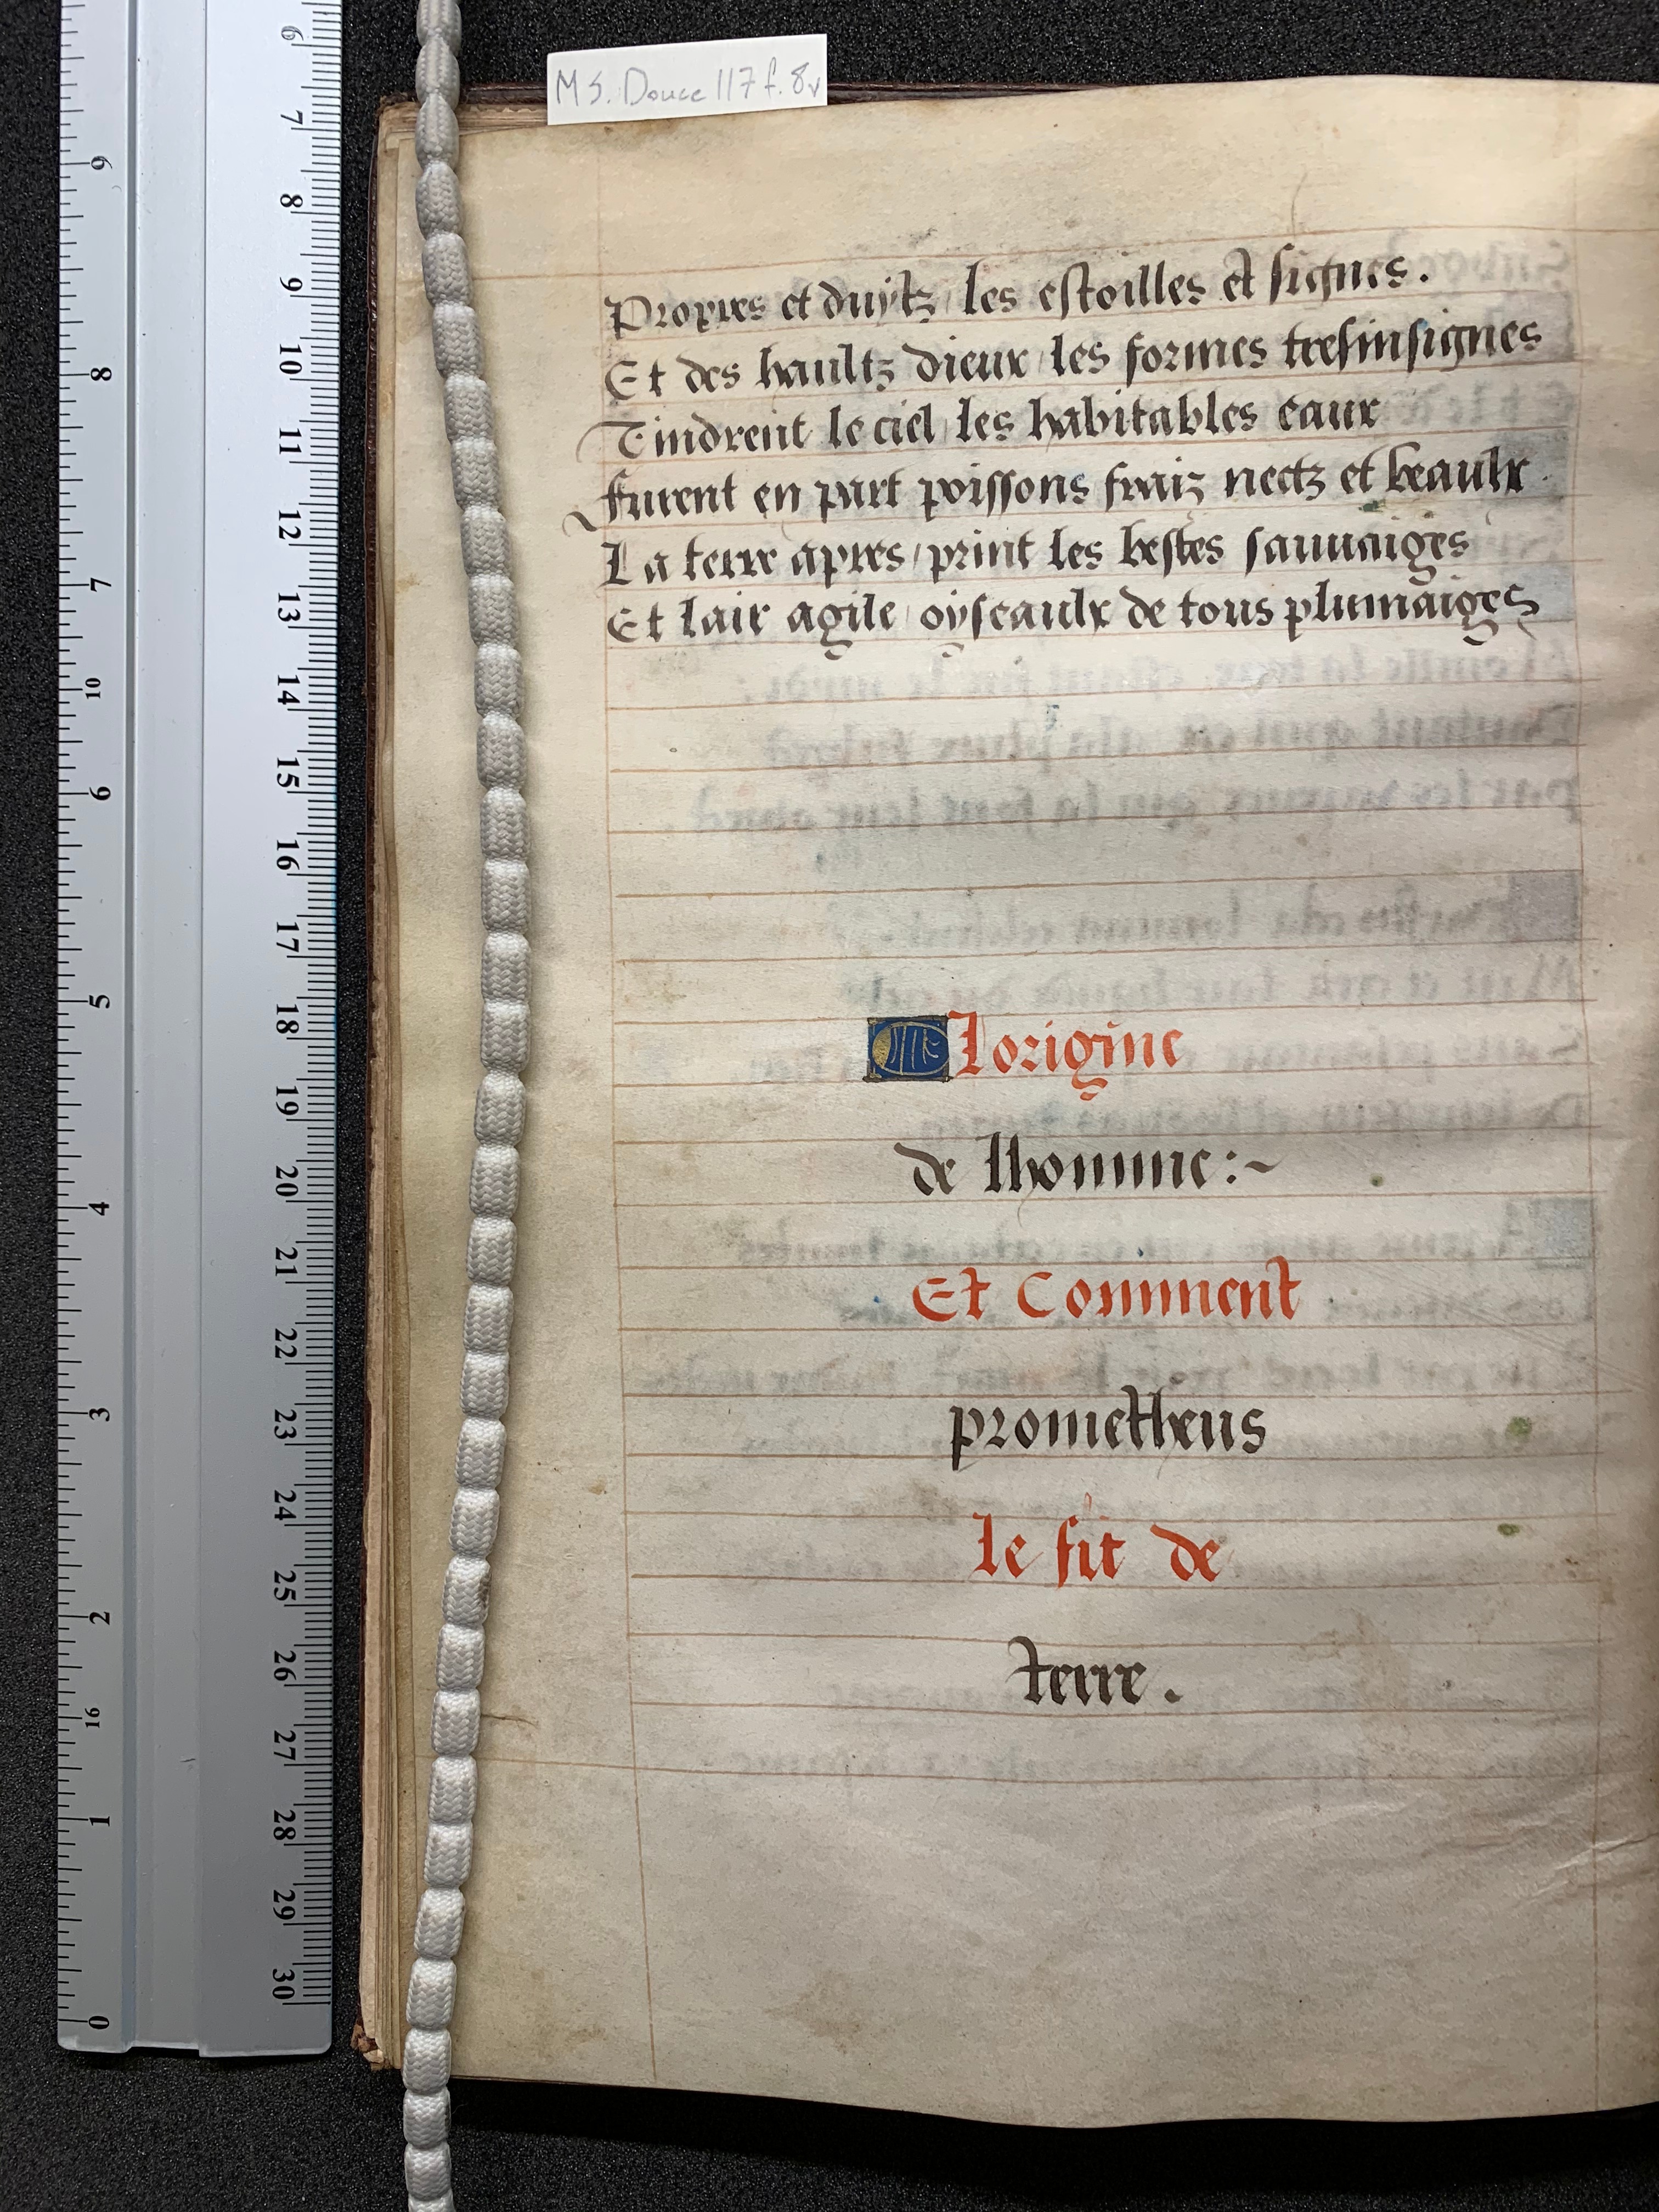 MS. Douce 117 f. 8v
Propres et duytz / les estoilles et signes.
Et des haultz dieux / les formes tresinsignes
Tindrent le ciel / les habitables eaux
furent en part poissons fraiz nectz et beaulx.
La terre apres / print les bestes sauuaiges
Et lair agile / oyseaulx de tous plumaiges
Lorigine
de lhomme:~
Et Comment
prometheus
le fit de
terre.
6
7
8
9
10
11
12
13
14
15
16
17
18
19
20
21
22
23
24
25
26
27
28
29
30
9
8
7
10
6
5
4
3
2
16
1
0